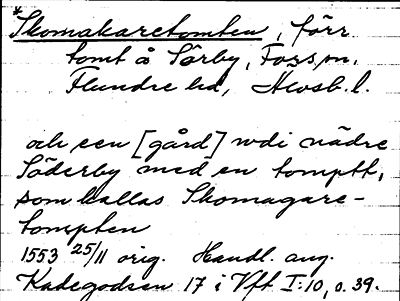 *Skomakaretomten, förr
tomt å Sörby, Fors sn.
Flundre hd, Älvsb. l.
och een [gård] wdi nädre
Söderby med en tomptt,
som kallas Skomagare-
tompten
1553 25/11 orig. Handl. ang.
Kadegodsen 17 i Vft I:10, s. 39.